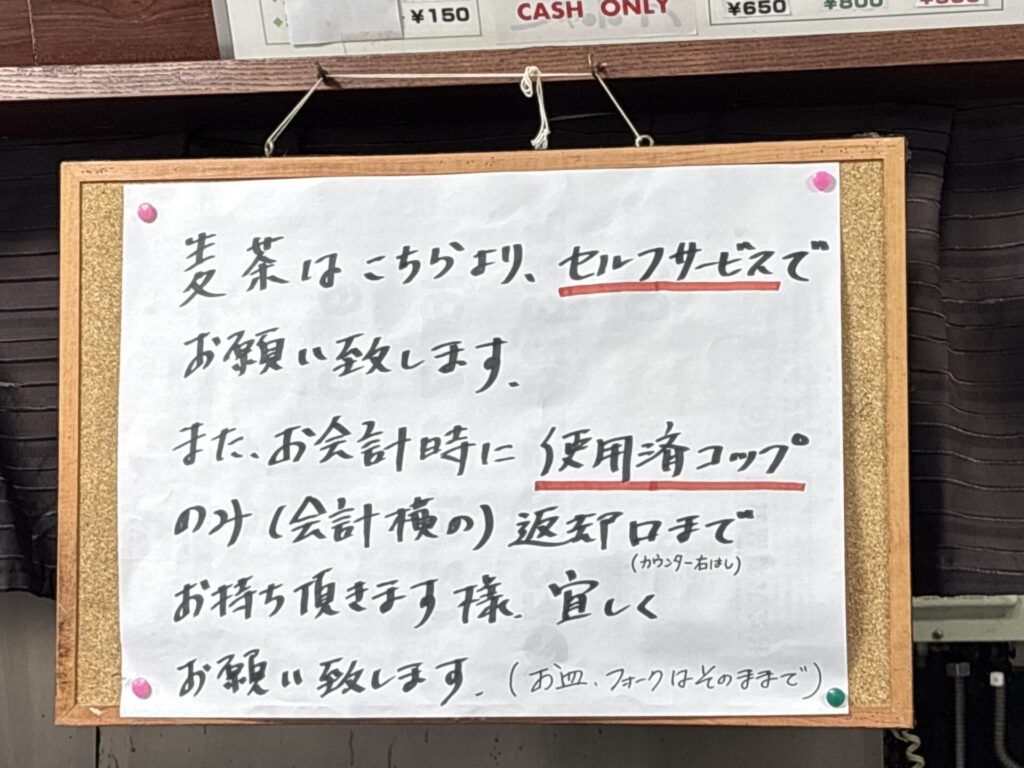 ¥150
CASH ONLY
¥650
¥800
麦茶はこちらより、セルフサービスで
お願い致します。
また、お会計時に使用済コップ
のみ(会計横の)返却口まで
(カウンター右はし)
お持ち頂きます様、宜しく
お願い致します。(お皿、フォークはそのままで)